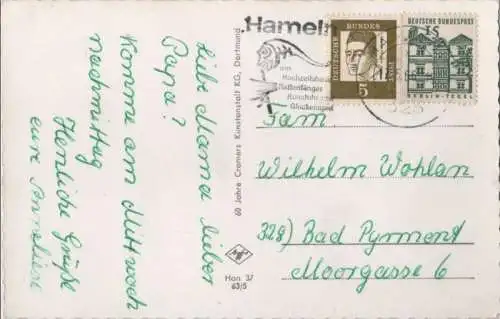 Liebe Mama lieber
Papa?
Komme am Mittwoch
nachmittag
Herzliche Grüße
eure Anneliese
60 Jahre Cramers Kunstanstalt KG, Dortmund
Han 37
63/5
Hameln
am
Hochzeitshaus
Rattenfänger
Kunstuhr
Glockenspiel
DEUTSCHE BUNDESPOST
5
DEUTSCHE BUNDESPOST
15
BERLIN-TEGEL
Fam.
Wilhelm Wohlan
328) Bad Pyrmont
Moorgasse 6